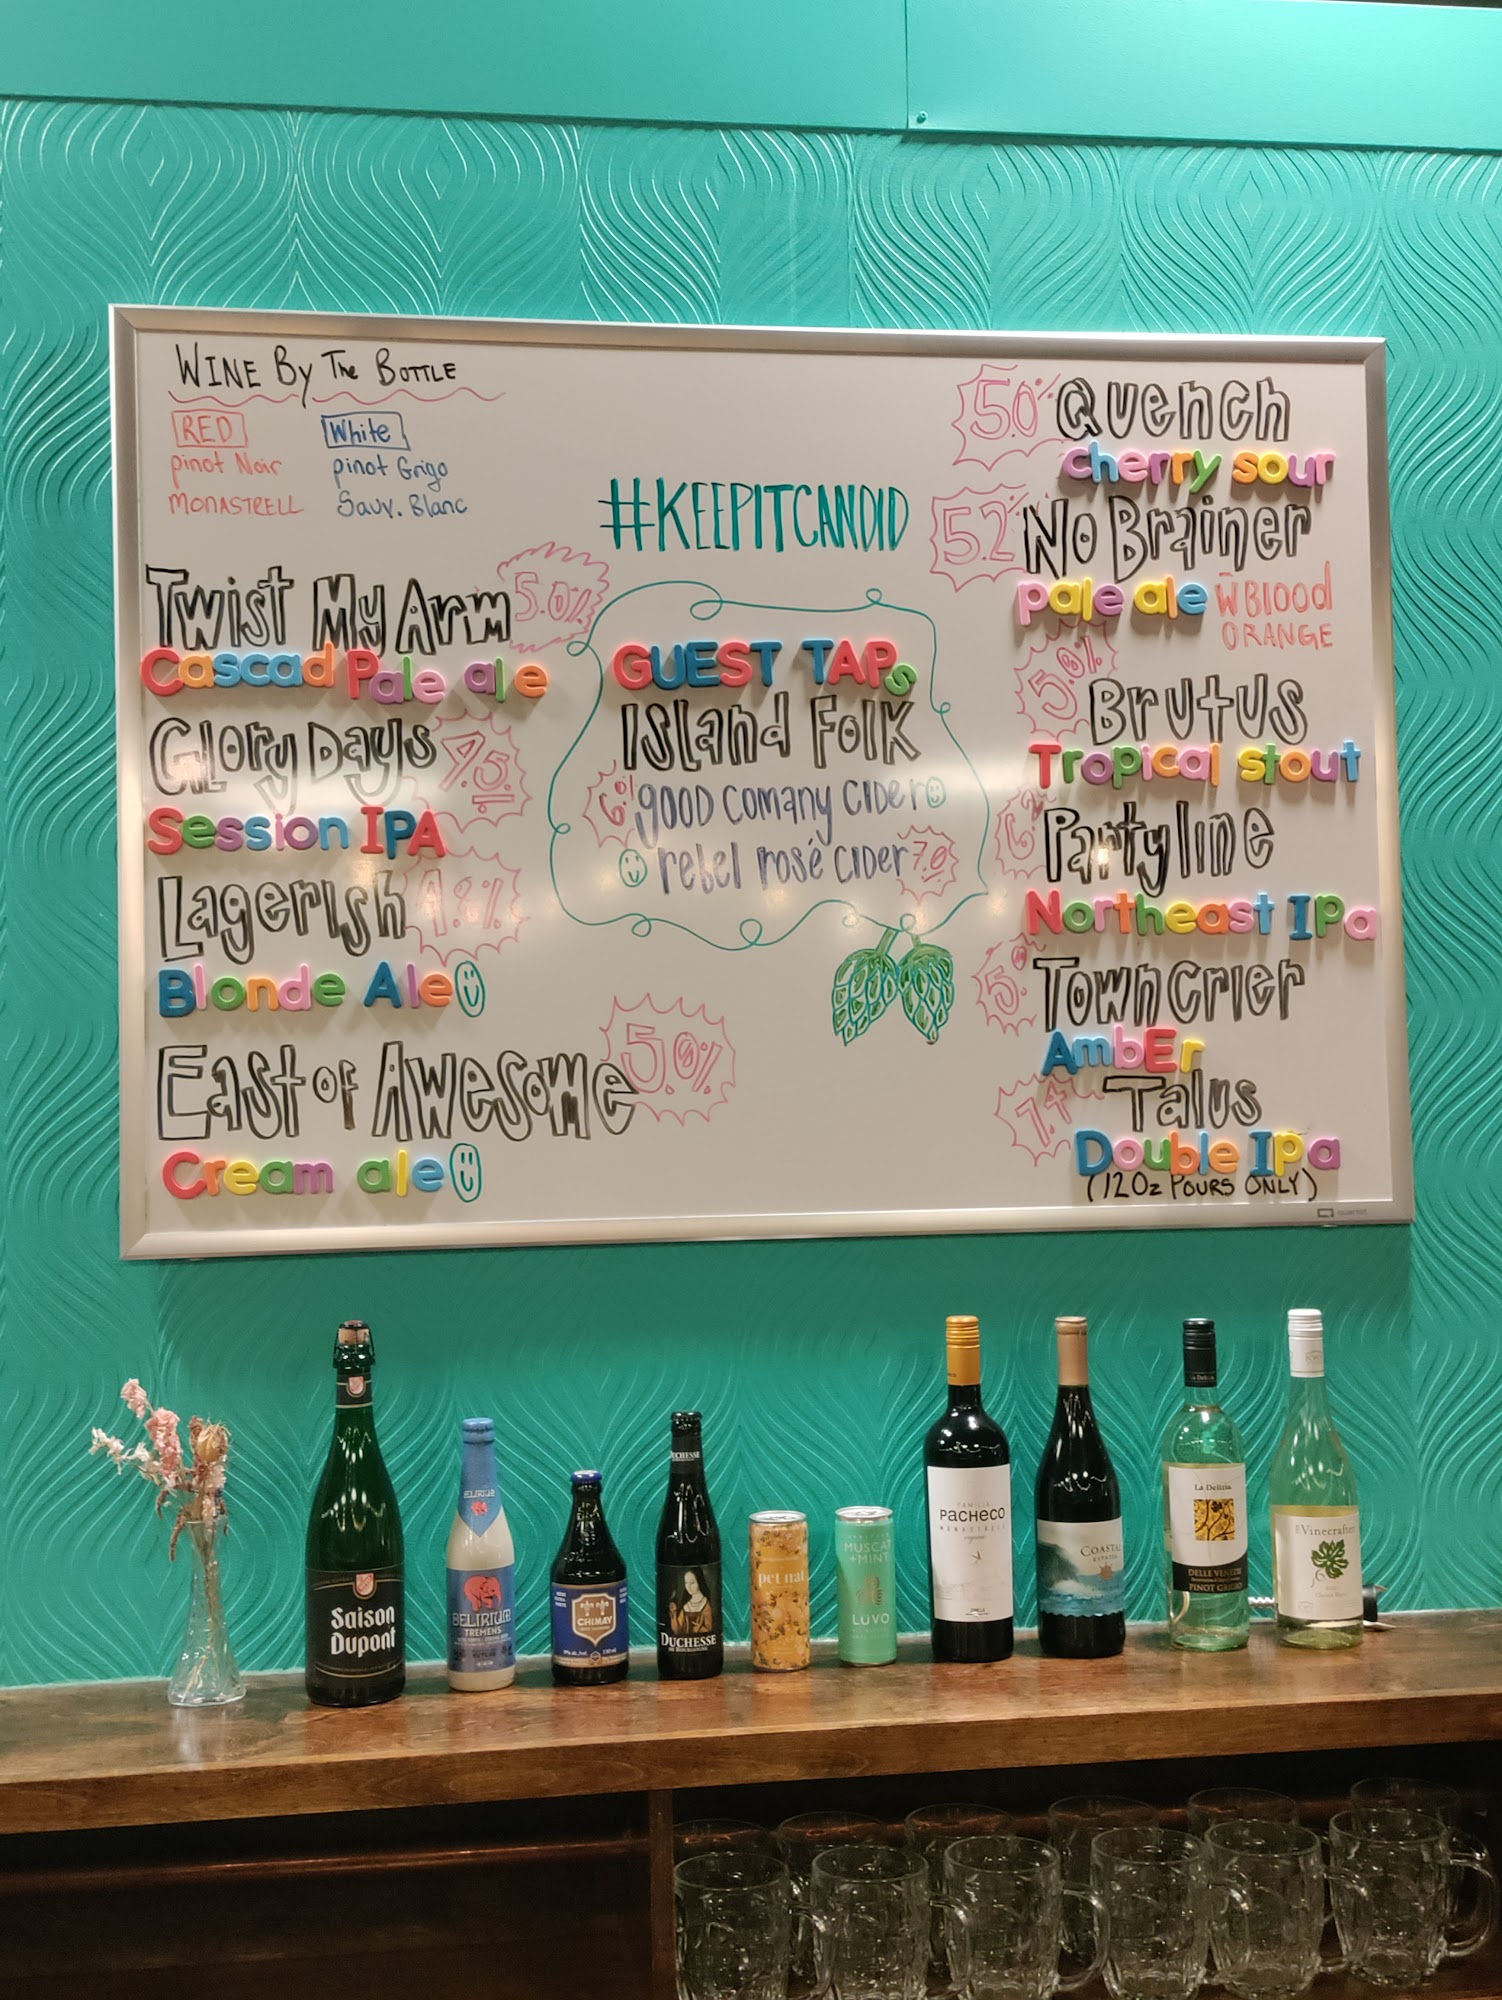 WINE By The BOTTLE
RED
pinot Noir
MONASTRELL
White
pinot Grigo
Sauv. Blanc
Twist My Arm 5.0%
Cascad Pale ale
Glory Days 4.5
Session IPA
Lagerish 4.8%
Blonde Ale
East of Awesome 5.0%
Cream ale
#KEEPITCANDID
GUEST TAPs
Island Folk
6.% good comany cider
rebel rosé cider 7.0
5.0% Quench
cherry sour
5.2% No Brainer
pale ale w BLOOD
ORANGE
5.0% Brutus
Tropical stout
Partyline
Northeast IPa
Town Crier
AmbEr
Talus
Double Ipa
(12Oz POURS ONLY)
Saison
Dupont
DELIRIUM
DELIRIUM
TREMENS
CHIMAY
DUCHESSE
DUCHESSE
DE BOURGOGNE
pet nat
MUSCAT
+MINT
LUVO
FAMILIA
PACHECO
MONASTRELL
COASTAL
ESTATES
La Delizia
DELLE VENEZIE
PINOT GRIGIO
Vinecrafter